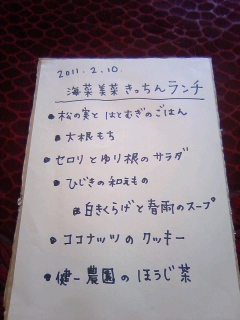 2011.2.10.
海菜美菜きっちんランチ
●松の実と はとむぎのごはん
●大根もち
●セロリとゆり根のサラダ
●ひじきの和えもの
●白きくらげと春雨のスープ
●ココナッツのクッキー
●健一農園のほうじ茶